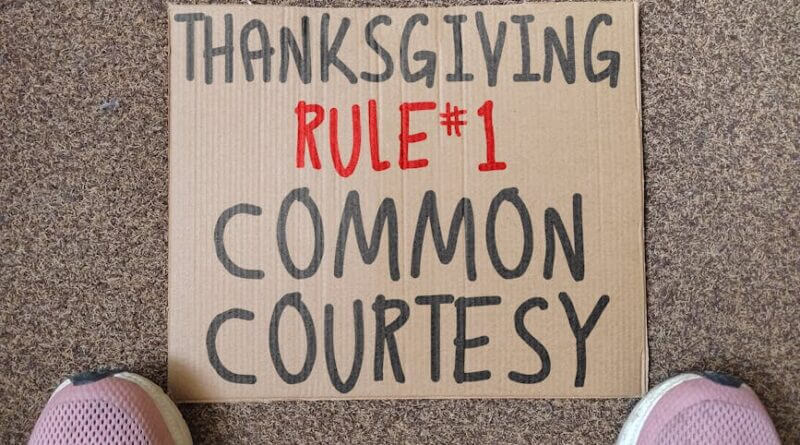 THANKSGIVING
RULE #1
COMMON
COURTESY